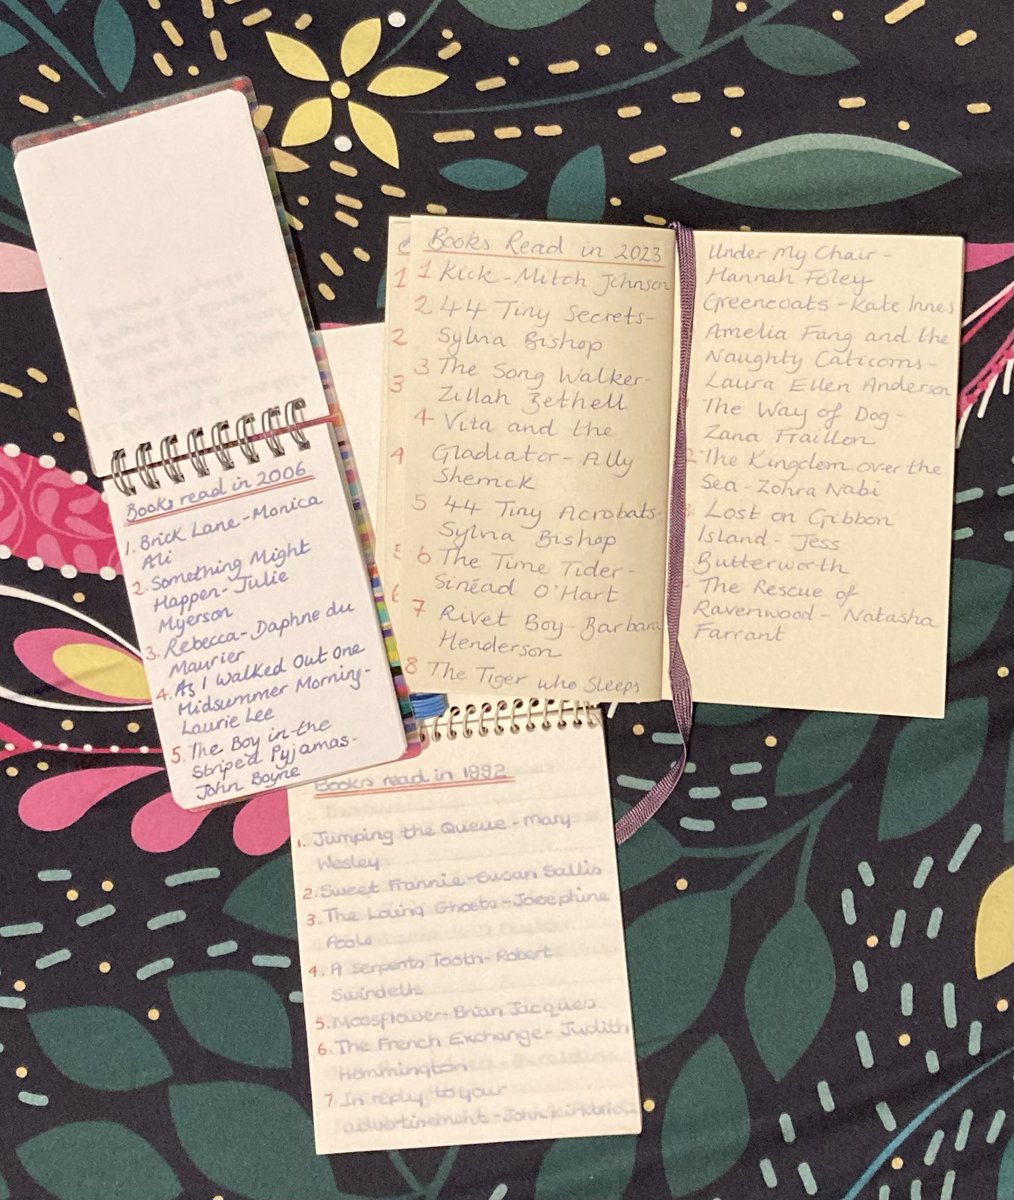 Books read in 2006
1. Brick Lane - Monica
Ali
2. Something Might
Happen - Julie
Myerson
3. Rebecca - Daphne du
Maurier
4. As I Walked Out One
Midsummer Morning -
Laurie Lee
5. The Boy in the
Striped Pyjamas -
John Boyne
Books Read in 2023
1 Kick - Mitch Johnson
2 44 Tiny Secrets -
Sylvia Bishop
3 The Song Walker -
Zillah Bethell
4 Vita and the
Gladiator - Ally
Sherrick
5 44 Tiny Acrobats -
Sylvia Bishop
6 The Time Tider -
Sinéad O'Hart
7 Rivet Boy - Barbara
Henderson
8 The Tiger Who Sleeps
Under My Chair -
Hannah Foley
Greencoats - Kate Innes
Amelia Fang and the
Naughty Caticorns -
Laura Ellen Anderson
The Way of Dog -
Zana Fraillon
The Kingdom over the
Sea - Zohra Nabi
Lost on Gibbon
Island - Jess
Butterworth
The Rescue of
Ravenwood - Natasha
Farrant
1
2
3
4
6
Books read in 1992
1. Jumping the Queue - Mary
Wesley
2. Sweet Frannie - Susan Sallis
3. The Loving Ghosts - Josephine
Poole
4. A Serpents Tooth - Robert
Swindells
5. Mossflower - Brian Jacques
6. The French Exchange - Judith
Hemmington
7. In reply to your
advertisement - John